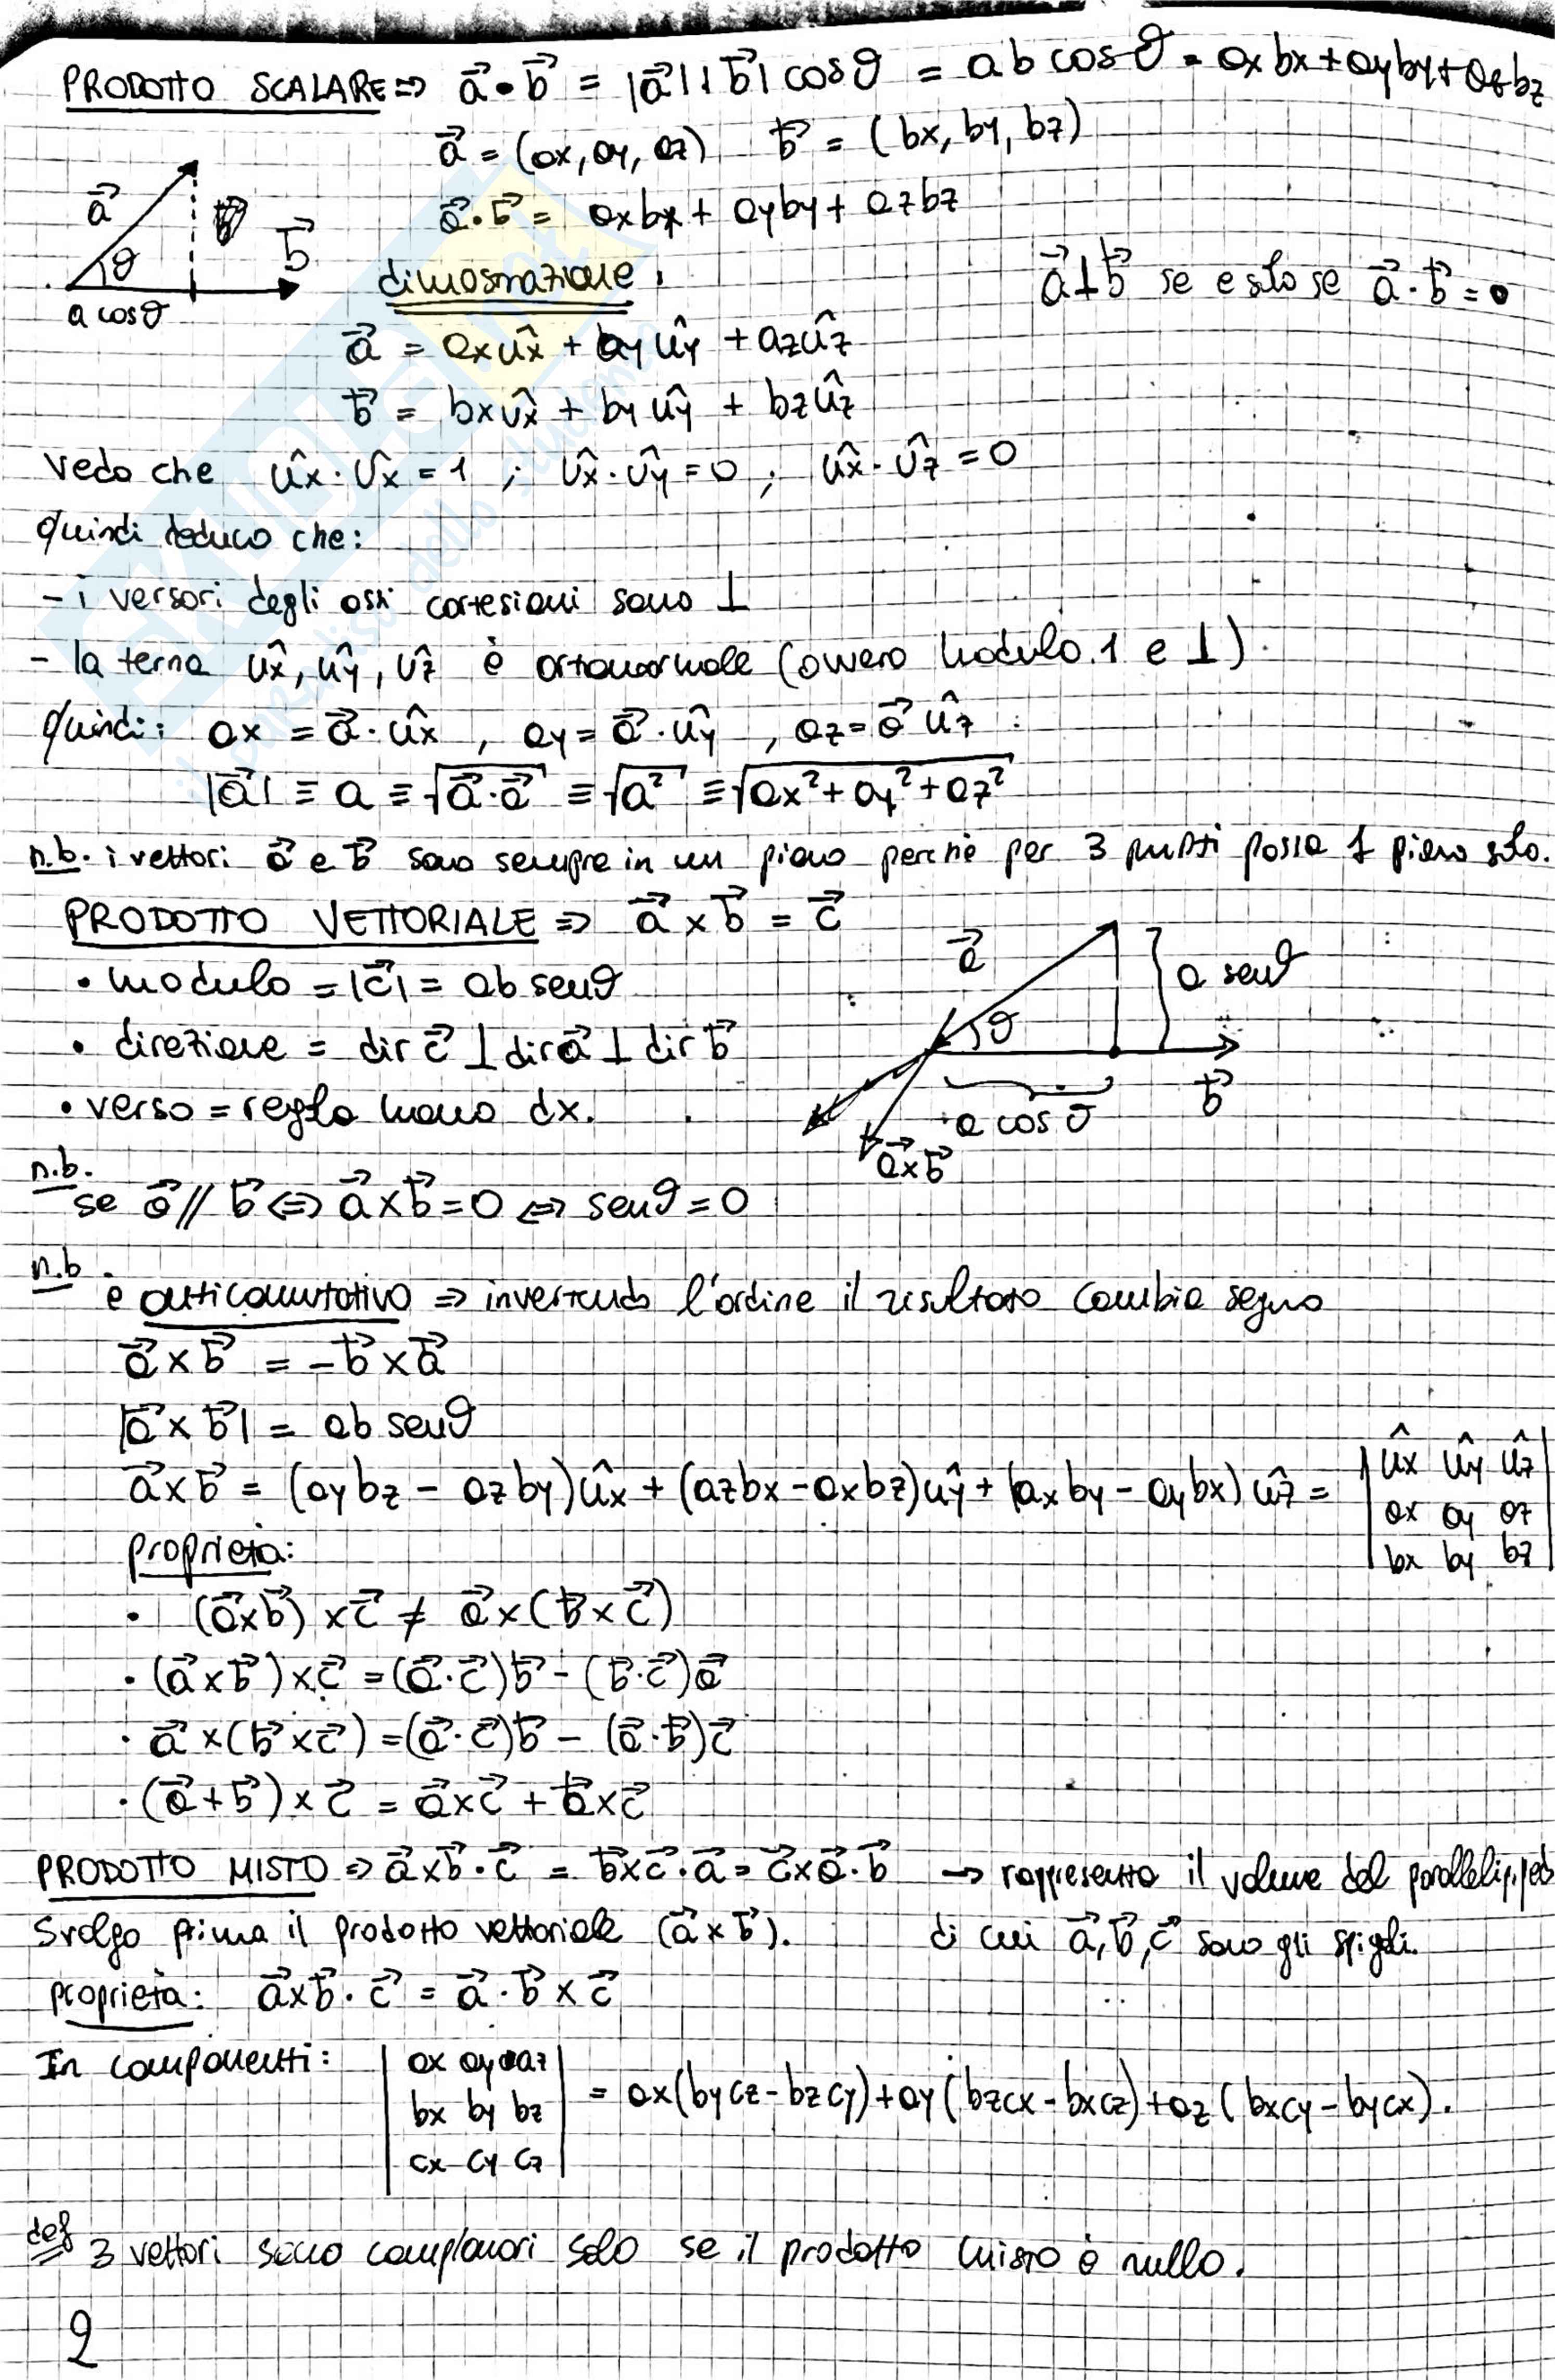 PRODOTTO SCALARE ⇒ a⃗ • b⃗ = |a⃗|·|b⃗| cosϑ = ab cosϑ = axbx + ayby + azbz
a⃗ = (ax, ay, az) b⃗ = (bx, by, bz)
a⃗ · b⃗ = axbx + ayby + azbz
a⃗ b⃗ ϑ
a cosϑ
dimostrazione:
a⃗ ⊥ b⃗ se e solo se a⃗ · b⃗ = 0
a⃗ = axûx + ayûy + azûz
b⃗ = bxûx + byûy + bzûz
Vedo che ûx · ûx = 1 ; ûx · ûy = 0 ; ûx · ûz = 0
quindi deduco che:
- i versori degli assi cartesiani sono ⊥
- la terna ûx, ûy, ûz è ortonormale (ovvero modulo 1 e ⊥).
quindi: ax = a⃗ · ûx , ay = a⃗ · ûy , az = a⃗ ûz
|a⃗| ≡ a ≡ √(a⃗ · a⃗) ≡ √(a²) ≡ √(ax² + ay² + az²)
n.b. i vettori a⃗ e b⃗ sono sempre in un piano perchè per 3 punti passa 1 piano solo.
PRODOTTO VETTORIALE ⇒ a⃗ × b⃗ = c⃗
• modulo = |c⃗| = ab senϑ
• direzione = dir c⃗ ⊥ dir a⃗ ⊥ dir b⃗
• verso = regola mano dx.
a⃗ ϑ a senϑ
a cosϑ b⃗
a⃗×b⃗
n.b.
se a⃗ // b⃗ ⇔ a⃗ × b⃗ = 0 ⇔ senϑ = 0
n.b. è anticommutativo ⇒ invertendo l'ordine il risultato cambia segno
a⃗ × b⃗ = - b⃗ × a⃗
|a⃗ × b⃗| = ab senϑ
a⃗ × b⃗ = (aybz - azby)ûx + (azbx - axbz)ûy + (axby - aybx)ûz = | ûx ûy ûz |
| ax ay az |
| bx by bz |
proprietà:
• (a⃗×b⃗) × c⃗ ≠ a⃗ × (b⃗ × c⃗)
• (a⃗ × b⃗) × c⃗ = (a⃗ · c⃗)b⃗ - (b⃗ · c⃗)a⃗
• a⃗ × (b⃗ × c⃗) = (a⃗ · c⃗)b⃗ - (a⃗ · b⃗)c⃗
• (a⃗ + b⃗) × c⃗ = a⃗×c⃗ + b⃗×c⃗
PRODOTTO MISTO ⇒ a⃗×b⃗ · c⃗ = b⃗×c⃗ · a⃗ = c⃗×a⃗ · b⃗ → rappresenta il volume del parallelepipedo
Svolgo prima il prodotto vettoriale (a⃗ × b⃗). di cui a⃗, b⃗, c⃗ sono gli spigoli.
proprietà: a⃗×b⃗ · c⃗ = a⃗ · b⃗ × c⃗
In componenti: | ax ay az |
| bx by bz | = ax(bycz - bzcy) + ay(bzcx - bxcz) + az(bxcy - bycx).
| cx cy cz |
def 3 vettori sono complanari solo se il prodotto misto è nullo.
2